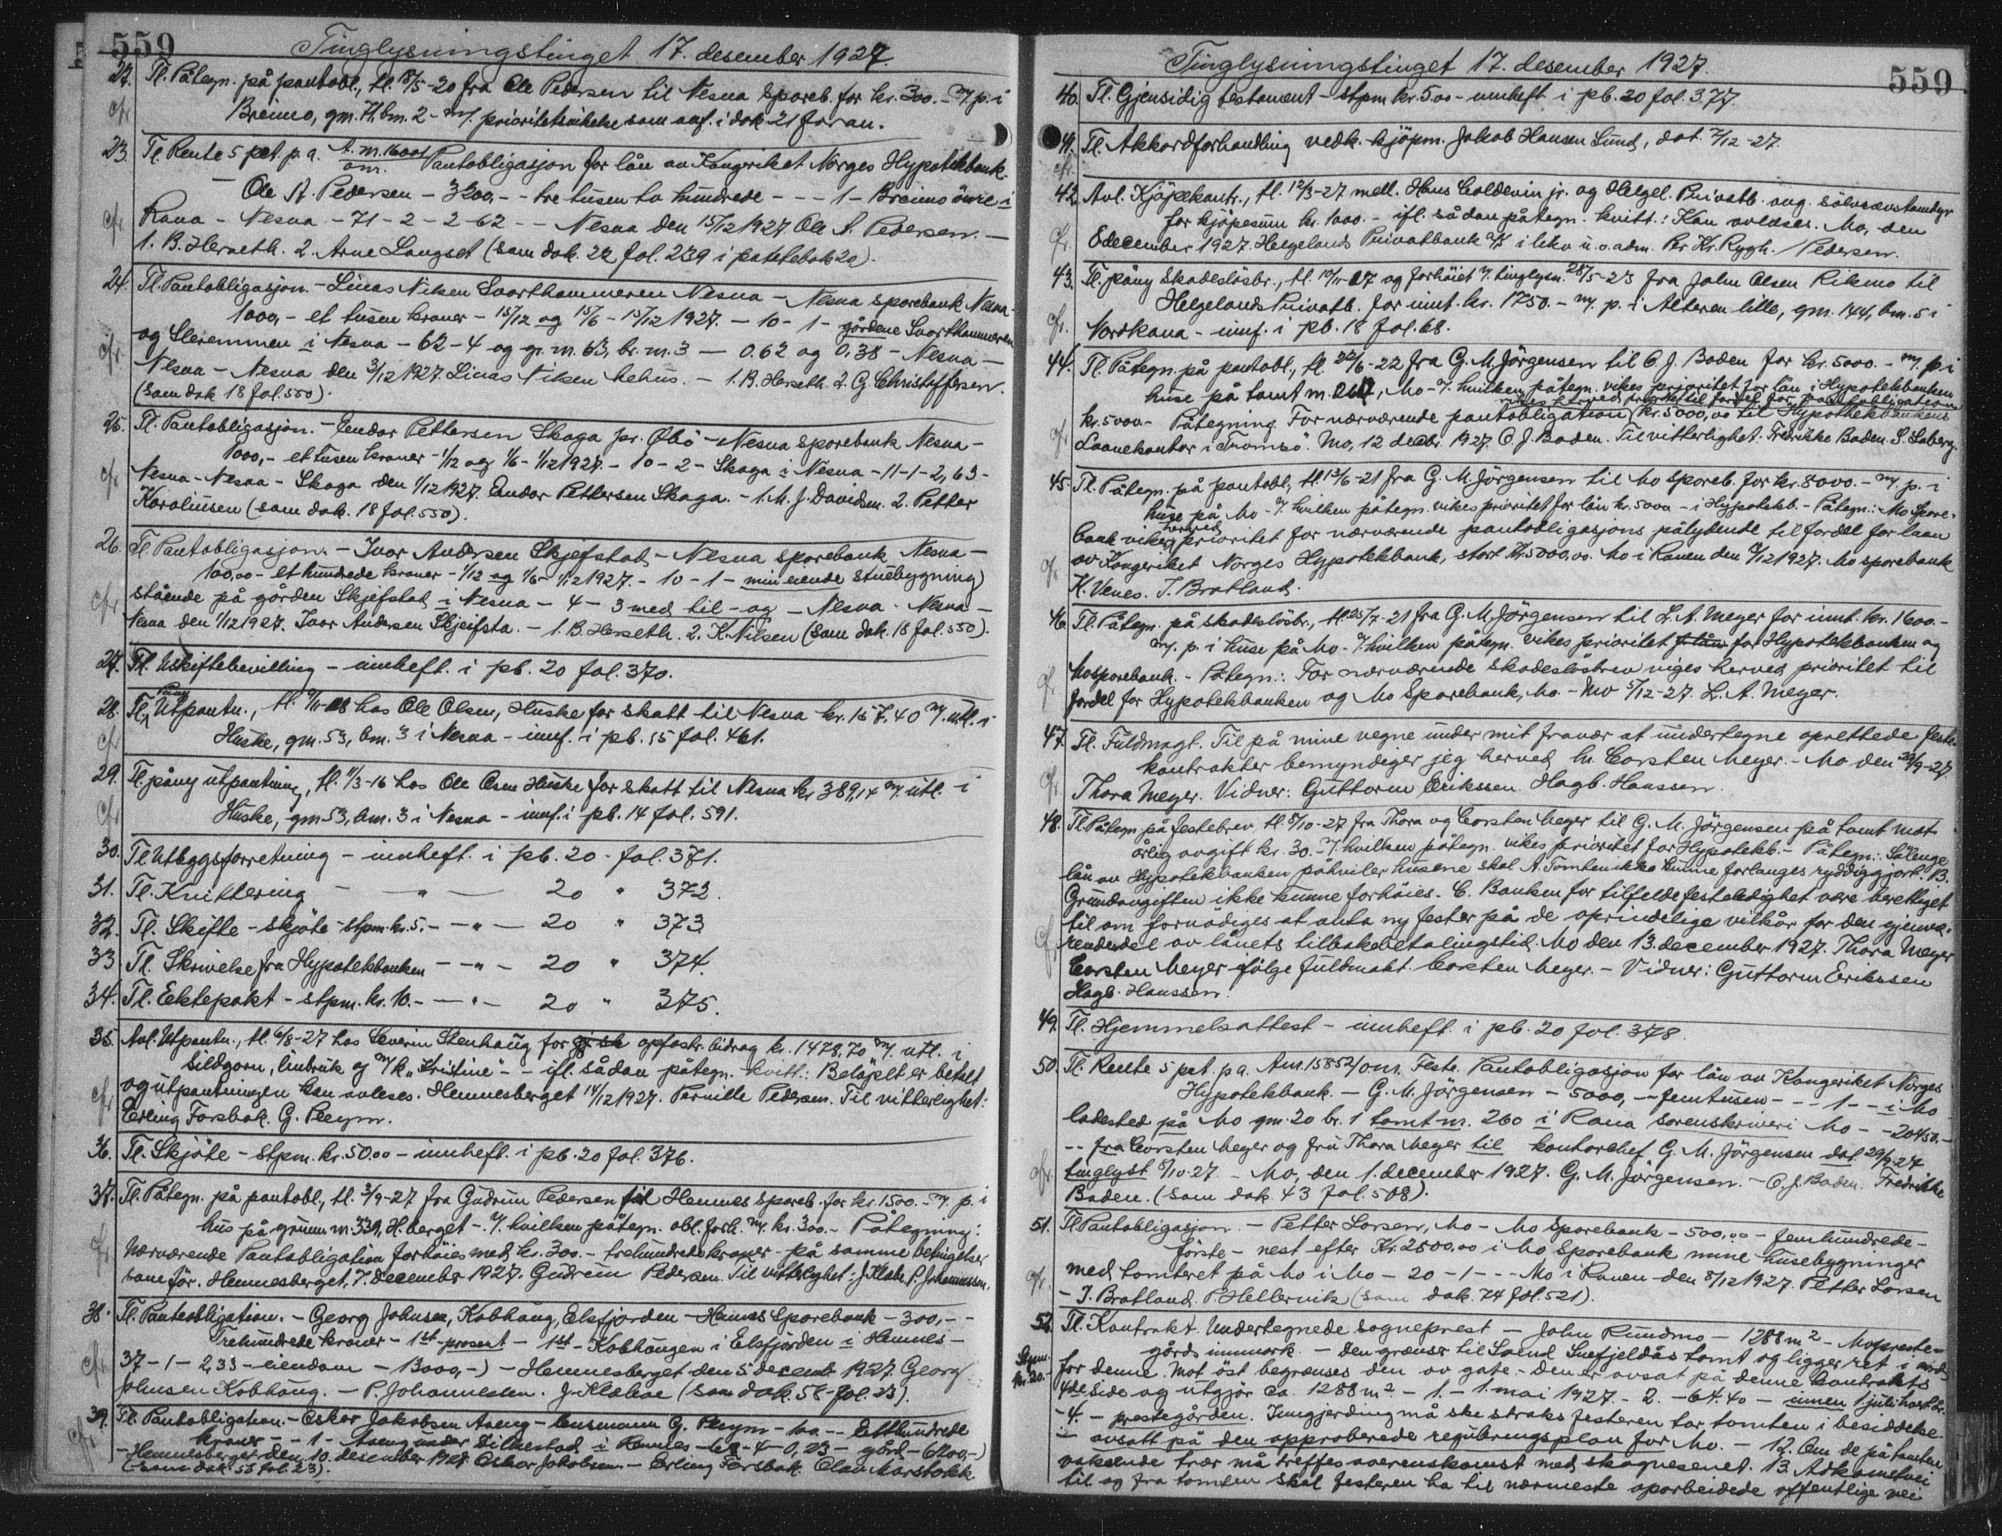 559
Tinglysningstinget 17. desember 1927.
22. Tl. Påtegn. på pantobl., tl. 18/5-20 fra Ole Pedersen til Nesna spareb. for kr. 300.- m/ p. i
cfr Breimo, gm. 71, bm. 2 - m/ prioritetsvikelse som anf. i dok. 21 foran.
23. Tl. Rente 5 pct. p.a. A.m. 16001 Pantobligasjon for lån av Kongeriket Norges Hypotekbank.
om.
- Ole A. Pedersen - 3200,- - tre tusen to hundrede - - - 1 - Breimo övre i
cfr Rana - Nesna - 71 - 2 - 2-62 - - Nesna den 15/12 1927 Ole A. Pedersen. -
1. B. Herseth. 2. Arne Langset (som dok. 22 fol. 239 i pantebok 20).
24. Tl. Pantobligasjon. - Linas Nilsen Svarthammeren Nesna - Nesna sparebank Nesna -
1000,- et tusen kroner - 15/12 og 15/6 - 15/12 1927. - 10 - 1 - gårdene Svarthammeren
cfr og Sleremmen i Nesna - 62 - 4 og gr. m. 63, br. m. 3 - 0.62 og 0,38 - Nesna -
Nesna - Nesna den 3/12 1927. Linas Nilsen - 1. B. Herseth. 2. G. Christoffersen.
(som dok 18 fol. 550).
25. Tl. Pantobligasjon. - Endor Pettersen Skaga pr. Øbö - Nesna sparebank Nesna -
1000,- et tusen kroner - 1/12 og 1/6 - 1/12 1927. - 10 - 2 - Skaga i Nesna - 11-1-2,63 -
cfr Nesna - Nesna - Skaga den 1/12 1927. Endor Pettersen Skaga. - 1. M. J. Davidsen. 2. Petter
Karoliusen (som dok. 18 fol. 550).
26. Tl. Pantobligasjon. - Ivar Andersen Skjefstad - Nesna sparebank Nesna -
100,00 - et hundrede kroner - 1/12 og 1/6 - 1/12 1927. - 10 - 1 - min eiende stuebygning
cfr stående på gården Skjefstad i Nesna - 4 - 3 med til - og - Nesna - Nesna -
Nesna den 1/12 1927. Ivar Andersen Skjeifsta. - 1. B. Herseth. 2. K. Nilsen (som dok. 18 fol. 550).
27. Tl. Uskiftebevilling - innheft. i pb. 20 fol. 370.
28. Tl. Utpantn., tl. 9/11-08 hos Ole Olsen, Huske for skatt til Nesna kr. 157.40 m/ utl. i
cfr Huske, gm. 53, bm. 3 i Nesna - innf. i pb. 15 fol. 461.
29. Tl. påny utpantning, tl. 11/3-16 hos Ole Osen Huske for skatt til Nesna kr. 389,14 m/ utl. i
cfr Huske, gm. 53, bm. 3 i Nesna - innf. i pb. 14 fol. 591.
30. Tl. Utbygsforretning - innheft. i pb. 20 - fol. 371.
31. Tl. Knittering - — " — 20 " 372.
32. Tl. Skifte - skjöte - stpm. kr. 5. - — " — 20 " 373
33 Tl. Skrivelse fra Hypotekbanken — " — 20 " 374.
34. Tl. Ektepakt - stpm. kr. 10. - — " — 20 " 375.
35. Avl. Utpantn., tl. 6/8-27 hos Severin Stenhaug for opfostr. bidrag kr. 1478,70 m/ utl. i
Sildgarn, linbruk og m/k "Kristine" - - ifl. sådan påtegn. kvitt.: Belöpet er betalt
cfr og utpantningen kan avleses. Hemnesberget 14/12 1927. Pernille Pedersen. Til vitterlighet:
Erling Forsbak. G. Reym.
36. Tl. Skjöte - stpm. kr. 50.00 - innheft. i pb. 20 fol. 376.
37. Tl. Påtegn. på pantobl., tl. 3/9-27 fra Gudrun Pedersen til Hemnes spareb. for kr. 1500. - m/ p. i
hus på grunn m. 339, H. berget - v/ hvilken påtegn. obl. forh. m/ kr. 300. - Påtegning:
cfr Nærværende Pantobligation forhöies med kr. 300. - trehundrede kroner - på samme betingelser
som för. Hemnesberget, 7. december 1927. Gudrun Pedersen. Til vitterlighet: J. Klabo. P. Johannessen.
38. Tl. Panteobligation. - Georg Johnsen, Kobhaug, Elsfjorden - Hemnes Sparebank - 300,- -
Trehundrede kroner - 1st prosent - 1st - Kobhaugen i Elsfjorden i Hemnes -
cfr 37 - 1 - 2,33 - eiendom - 13000,- ) - Hemnesberget den 5 decemb. 1927. Georg
Johnsen Kobhaug. - P. Johannessen. J. Klaboe (som dok. 58 fol. 23).
39. Tl. Pantobligation. - Oskar Jakobsen Aaeng - G. Reym - 100 - - Etthundrede
cfr kroner - - 1 - Aaeng under i Hemnes - 69 - 4 - 0,23 - gård - 6200,- )
- Hemnesberget den 10. desember 1927. Oskar Jakobsen - Erling Forsbak. Olav
(- som dok. 58 fol. 23).
Tinglysningstinget 17. desember 1927.
559
40. Tl. Gjensidig testament - stpm kr. 5.00 - innheft i pb. 20 fol. 377
41. Tl. Akkordforhandling vedk. kjöpm. Jakob Hansen Lund, dat. 7/12-27.
cfr.
42. Avl. Kjöpekontr., tl. 12/3-27 mell. Hans Coldevin jr. og Helgel. Privatb. ang. sölvrævstamdyr
for kjöpesum kr. 1000. - ifl. sådan påtegn. kvitt.: Kan avleses. Mo, den
cfr. 8 december 1927. Helgelands Privatbank A/S i likv. u. o. adm. Per Kr. Rygh. / Pedersen.
43. Tl. påny Skadeslösbr., tl. 19/11-17 og forhöiet v/ tinglysn. 28/5-23 fra John Olsen Rikmo til
Helgelands Privatb. for innt. kr. 1750. - m/ p. i Alteren lille, gm. 144, bm. 5 i
cfr. Nordrana - innf. i pb. 18 fol. 68.
44. Tl. Påtegn. på pantobl., tl. 22/6-22 fra G. M. Jörgensen til O. J. Boden for kr. 5000. - m/ p. i
huse på tomt m. 260, Mo - v/ hvilken påtegn. vikes prioritet for lån i Hypotekbanken
vikes herved prioritet til fordel for pantobligation
cfr kr. 5000.- Påtegning. For nærværende pantobligation kr. 5000,00 til Hypothekbankens
Laanekontor i Tromsö. Mo, 12 decbr. 1927. O. J. Boden. Til vitterlighet: Fredrikke Boden. S. Soberg.
45. Tl. Påtegn. på pantobl., tl. 13/6-21 fra G. M. Jörgensen til Mo spareb. for kr. 8000. - m/ p. i
huse på Mo - v/ hvilken påtegn. vikes prioritet for lån kr. 5000 - i Hypotekb. - Påtegn.: Mo Spare-
bank viker herved prioritet for nærværende pantobligasjons pålydende til fordel for laan
cfr av Kongeriket Norges Hypotekbank, stort kr. 5000,00. Mo i Ranen den 9/12 1927. Mo sparebank
K. Venes. J. Bratland.
46. Tl. Påtegn. på skadeslösbr., tl. 25/7-21 fra G. M. Jörgensen til L. A. Meyer for innt. kr. 1600. -
m/ p. i huse på Mo - v/ hvilken påtegn. vikes prioritet for lån for Hypotekbanken og
cfr Mo sparebank. - Påtegn.: For nærværende skadeslosbrev viges herved prioritet til
fordel for Hypotekbanken og Mo Sparebank, Mo. - Mo 5/12-27. L. A. Meyer.
47. Tl. Fuldmagt. Til på mine vegne under mit fravær at undertegne oprettede feste-
kontrakter bemyndiger jeg herved hr. Corsten Meyer. - Mo den 22/9-27
cfr. Thora Meyer. Vidner: Guttorm Erikssen. Hagb. Hanssen.
48. Tl. Påtegn. på festebrev, tl. 8/10-27 fra Thora og Corsten Meyer til G. M. Jörgensen på tomt mot
årlig avgift kr. 30. - v/ hvilken påtegn. vikes prioritet for Hypotekb. - Påtegn.: Sålenge
lån av Hypotekbanken påhviler husene skal A. Tomten ikke kunne forlanges ryddiggjort. B.
Grundavgiften ikke kunne forhöies. C. Banken for tilfelde festeledighet være berettiget
til om fornödiges at anta ny fester på de oprindelige vilkår for den gjenvæ-
cfr rende del av lånets tilbakebetalingstid. Mo den 13. december 1927. Thora Meyer
Corsten Meyer ifölge fuldmakt. Corsten Meyer. - Vidner: Guttorm Erikssen
Hagb. Hanssen.
49. Tl. Hjemmelsattest - innheft. i pb. 20 fol. 378.
50. Tl. Rente 5 pct. p.a. A.m. 15852/om. Feste. Pantobligasjon for lån av Kongeriket Norges
Hypotekbank. - G. M. Jörgensen - 5000,- - femtusen - - - 1 - - i Mo
ladested på Mo gm. 20 br. 1 tomt m. 260 i Rana sorenskriveri Mo - - 20450. -
cfr - - fra Corsten Meyer og fru Thora Meyer til kontorchef G. M. Jörgensen dat. 29/9-27
tinglyst 8/10-27. - Mo, den 1. december 1927. G. M. Jörgensen. - O. J. Boden. Fredrikke
Boden. (som dok. 43 fol. 508).
51. Tl. Pantobligasjon. - Petter Larsen, Mo - Mo Sparebank - 500,00 - femhundrede -
förste - nest efter Kr. 2500.00 i Mo Sparebank mine husebygninger
cfr. med tomteret på Mo i Mo - 20 - 1 - - - Mo i Ranen den 8/12 1927. Petter Larsen
- J. Bratland. P. Hellervik (som dok. 74 fol. 521).
52. Tl. Kontrakt. Undertegnede sogneprest - John Rundmo - 1288 m² - Mo preste-
Stpm. gårds innmark - den grænser til Svend Snefjeldås tomt og ligger ret i
kr. 20.- for denne. Mot öst begrænses den av gate - den er avsat på denne kontrakts
4de side og utgjör ca. 1288 m² - 1. - 1. mai 1927. - 2. - 64.40 - innen 1 juli hvert år.
- 4. - prestegården. Inngjerding må ske straks festeren tar tomten i besiddelse.
- avsatt på den approberede reguleringsplan for Mo. - 12. Om de på tomten
voksende trær må treffes overenskomst med skogvesenet. 13. Adkomstvei
til og fra tomten skal festeren ha til nærmeste oparbeidede offentlige vei